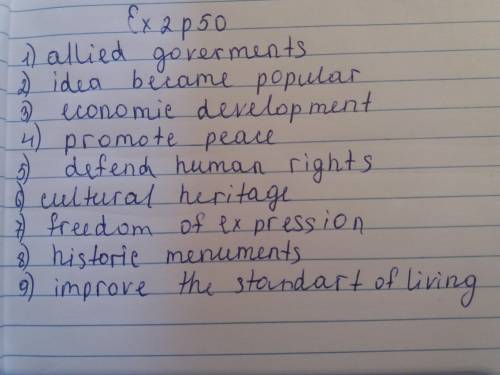 Ex 2 p 50
1) allied goverments
2) idea became popular
3) economic development
4) promote peace
5) defend human rights
6) cultural heritage
7) freedom of expression
8) historic menuments
9) improve the standart of living